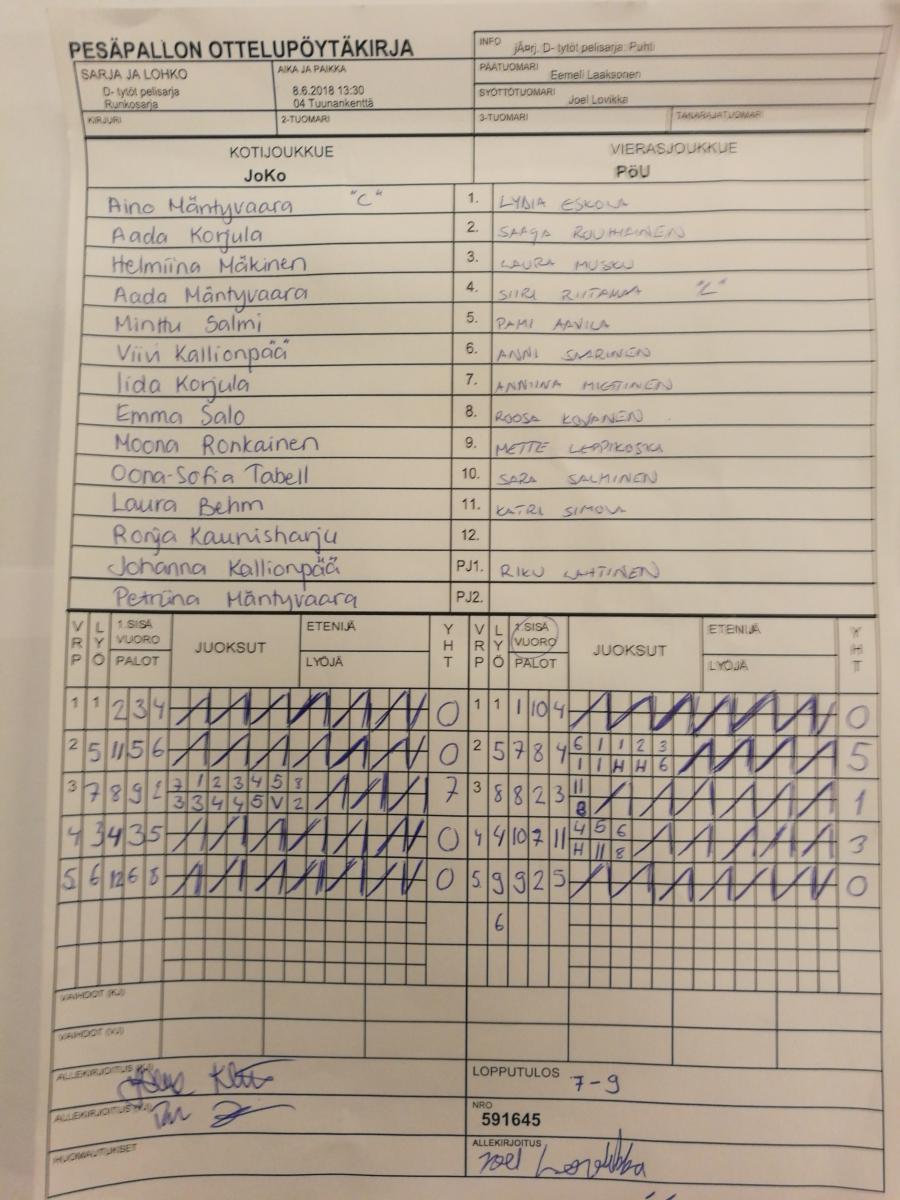 PESÄPALLON OTTELUPÖYTÄKIRJA
INFO jÄprj. D- tytöt pelisarja: Puhti
SARJA JA LOHKO
D- tytöt pelisarja
Runkosarja
AIKA JA PAIKKA
8.6.2018 13:30
04 Tuunankenttä
PÄÄTUOMARI Eemeli Laaksonen
SYÖTTÖTUOMARI Joel Lovikka
KIRJURI 2-TUOMARI 3-TUOMARI TAKARAJATUOMARI
KOTIJOUKKUE VIERASJOUKKUE
JoKo PöU
Aino Mäntyvaara "C" 1. LYDIA ESKOLA
Aada Korjula 2. SAAGA ROUHIAINEN
Helmiina Mäkinen 3. LAURA MUSKU
Aada Mäntyvaara 4. SIIRI "C"
Minttu Salmi 5. PAMI AAVILA
Viivi Kallionpää 6. ANNI SAARINEN
Iida Korjula 7. ANNIINA MIETTINEN
Emma Salo 8. ROOSA KOVANEN
Moona Ronkainen 9. METTE LEPPIKOSKI
Oona-Sofia Tabell 10. SARA SALMINEN
Laura Behm 11. KATRI SIMOLA
Ronja Kaunisharju 12.
Johanna Kallionpää PJ1. RIKU LAHTINEN
Petriina Mäntyvaara PJ2.
VRP LYÖ 1.SISÄ VUORO PALOT JUOKSUT ETENIJÄ LYÖJÄ YHT VRP LYÖ 1.SISÄ VUORO PALOT JUOKSUT ETENIJÄ LYÖJÄ YHT
1 1 2 3 4 0 1 1 1 10 4 0
2 5 11 5 6 0 2 5 7 8 4 6 1 1 2 3 5
1 1 H H 6
3 7 8 9 2 7 1 2 3 4 5 8 7 3 8 8 2 3 11 1
3 3 4 4 5 V 2 8
4 3 4 3 5 0 4 4 10 7 11 4 5 6 3
H 11 8
5 6 12 6 8 0 5 9 9 2 5 0
6
VAIHDOT (KJ)
VAIHDOT (VJ)
ALLEKIRJOITUS (KJ)
LOPPUTULOS 7-9
ALLEKIRJOITUS (VJ)
NRO
591645
HUOMAUTUKSET
ALLEKIRJOITUS
Joel Lovikka